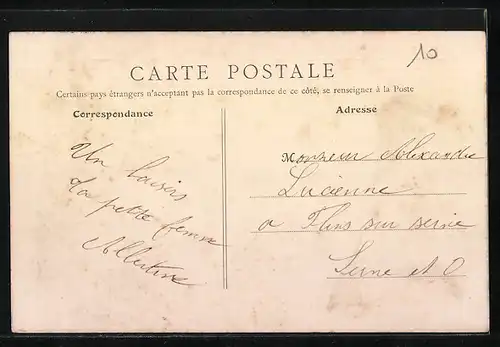 10
CARTE POSTALE
Certains pays étrangers n'acceptant pas la correspondance de ce côté, se renseigner à la Poste
Correspondance
Adresse
Un baisers
ta petite femme
Albertine
Monsieur Alexandre
Lucienne
a Flins sur seine
Seine et O